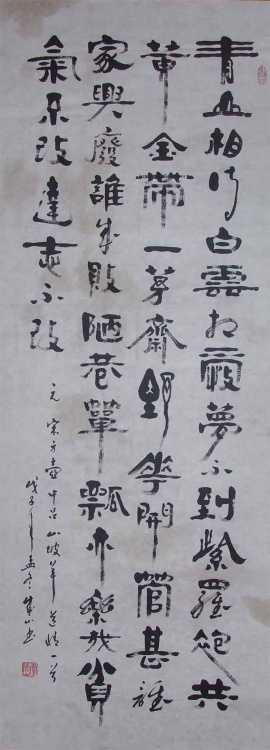 青山相待白雲相愛夢不到紫羅袍共
黄金帶一茅齋野花開管甚誰
家興廢誰成敗陋巷簞瓢亦樂哉貧
氣不改達志不改
元 宋方壺 中吕 山坡羊 道情一首
戊子年孟冬山书